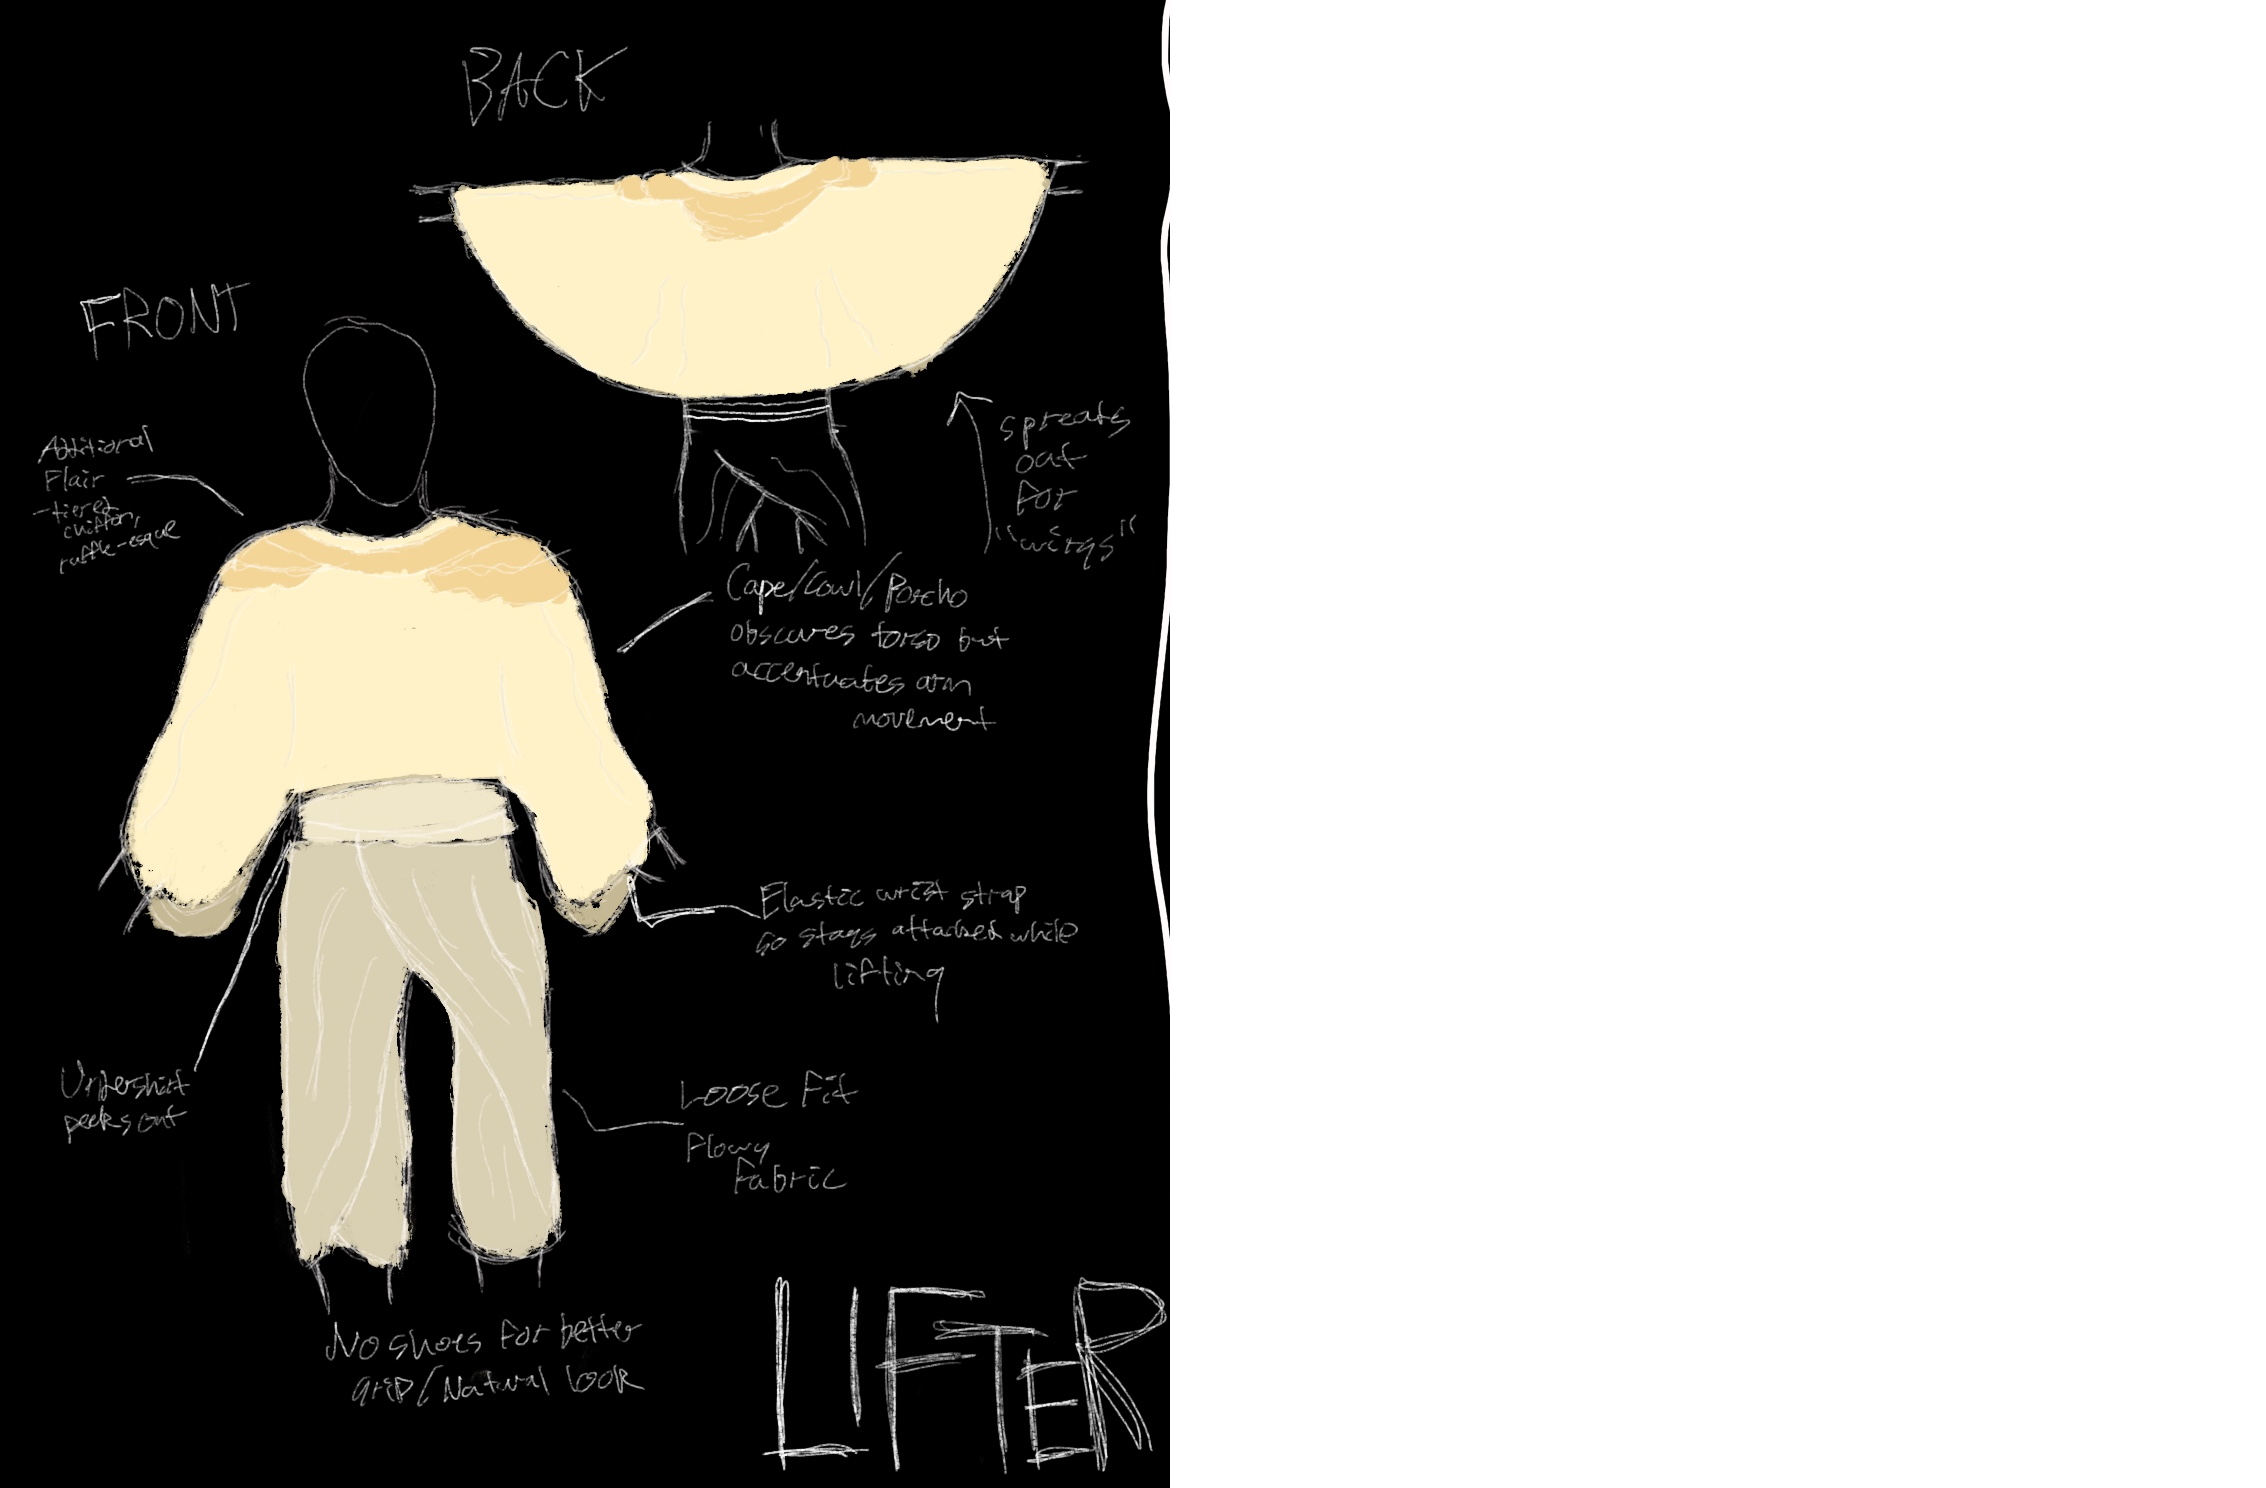 BACK
FRONT
Additional
Flair
-tiered
chiffon,
ruffle-esque
spreads
out
for
"wings"
Cape/Cowl/Poncho
obscures torso but
accentuates arm
movement
Elastic wrist strap
so stays attached while
lifting
Undershirt
peeks out
Loose Fit
Flowy
Fabric
No shoes for better
grip/Natural look
LIFTER